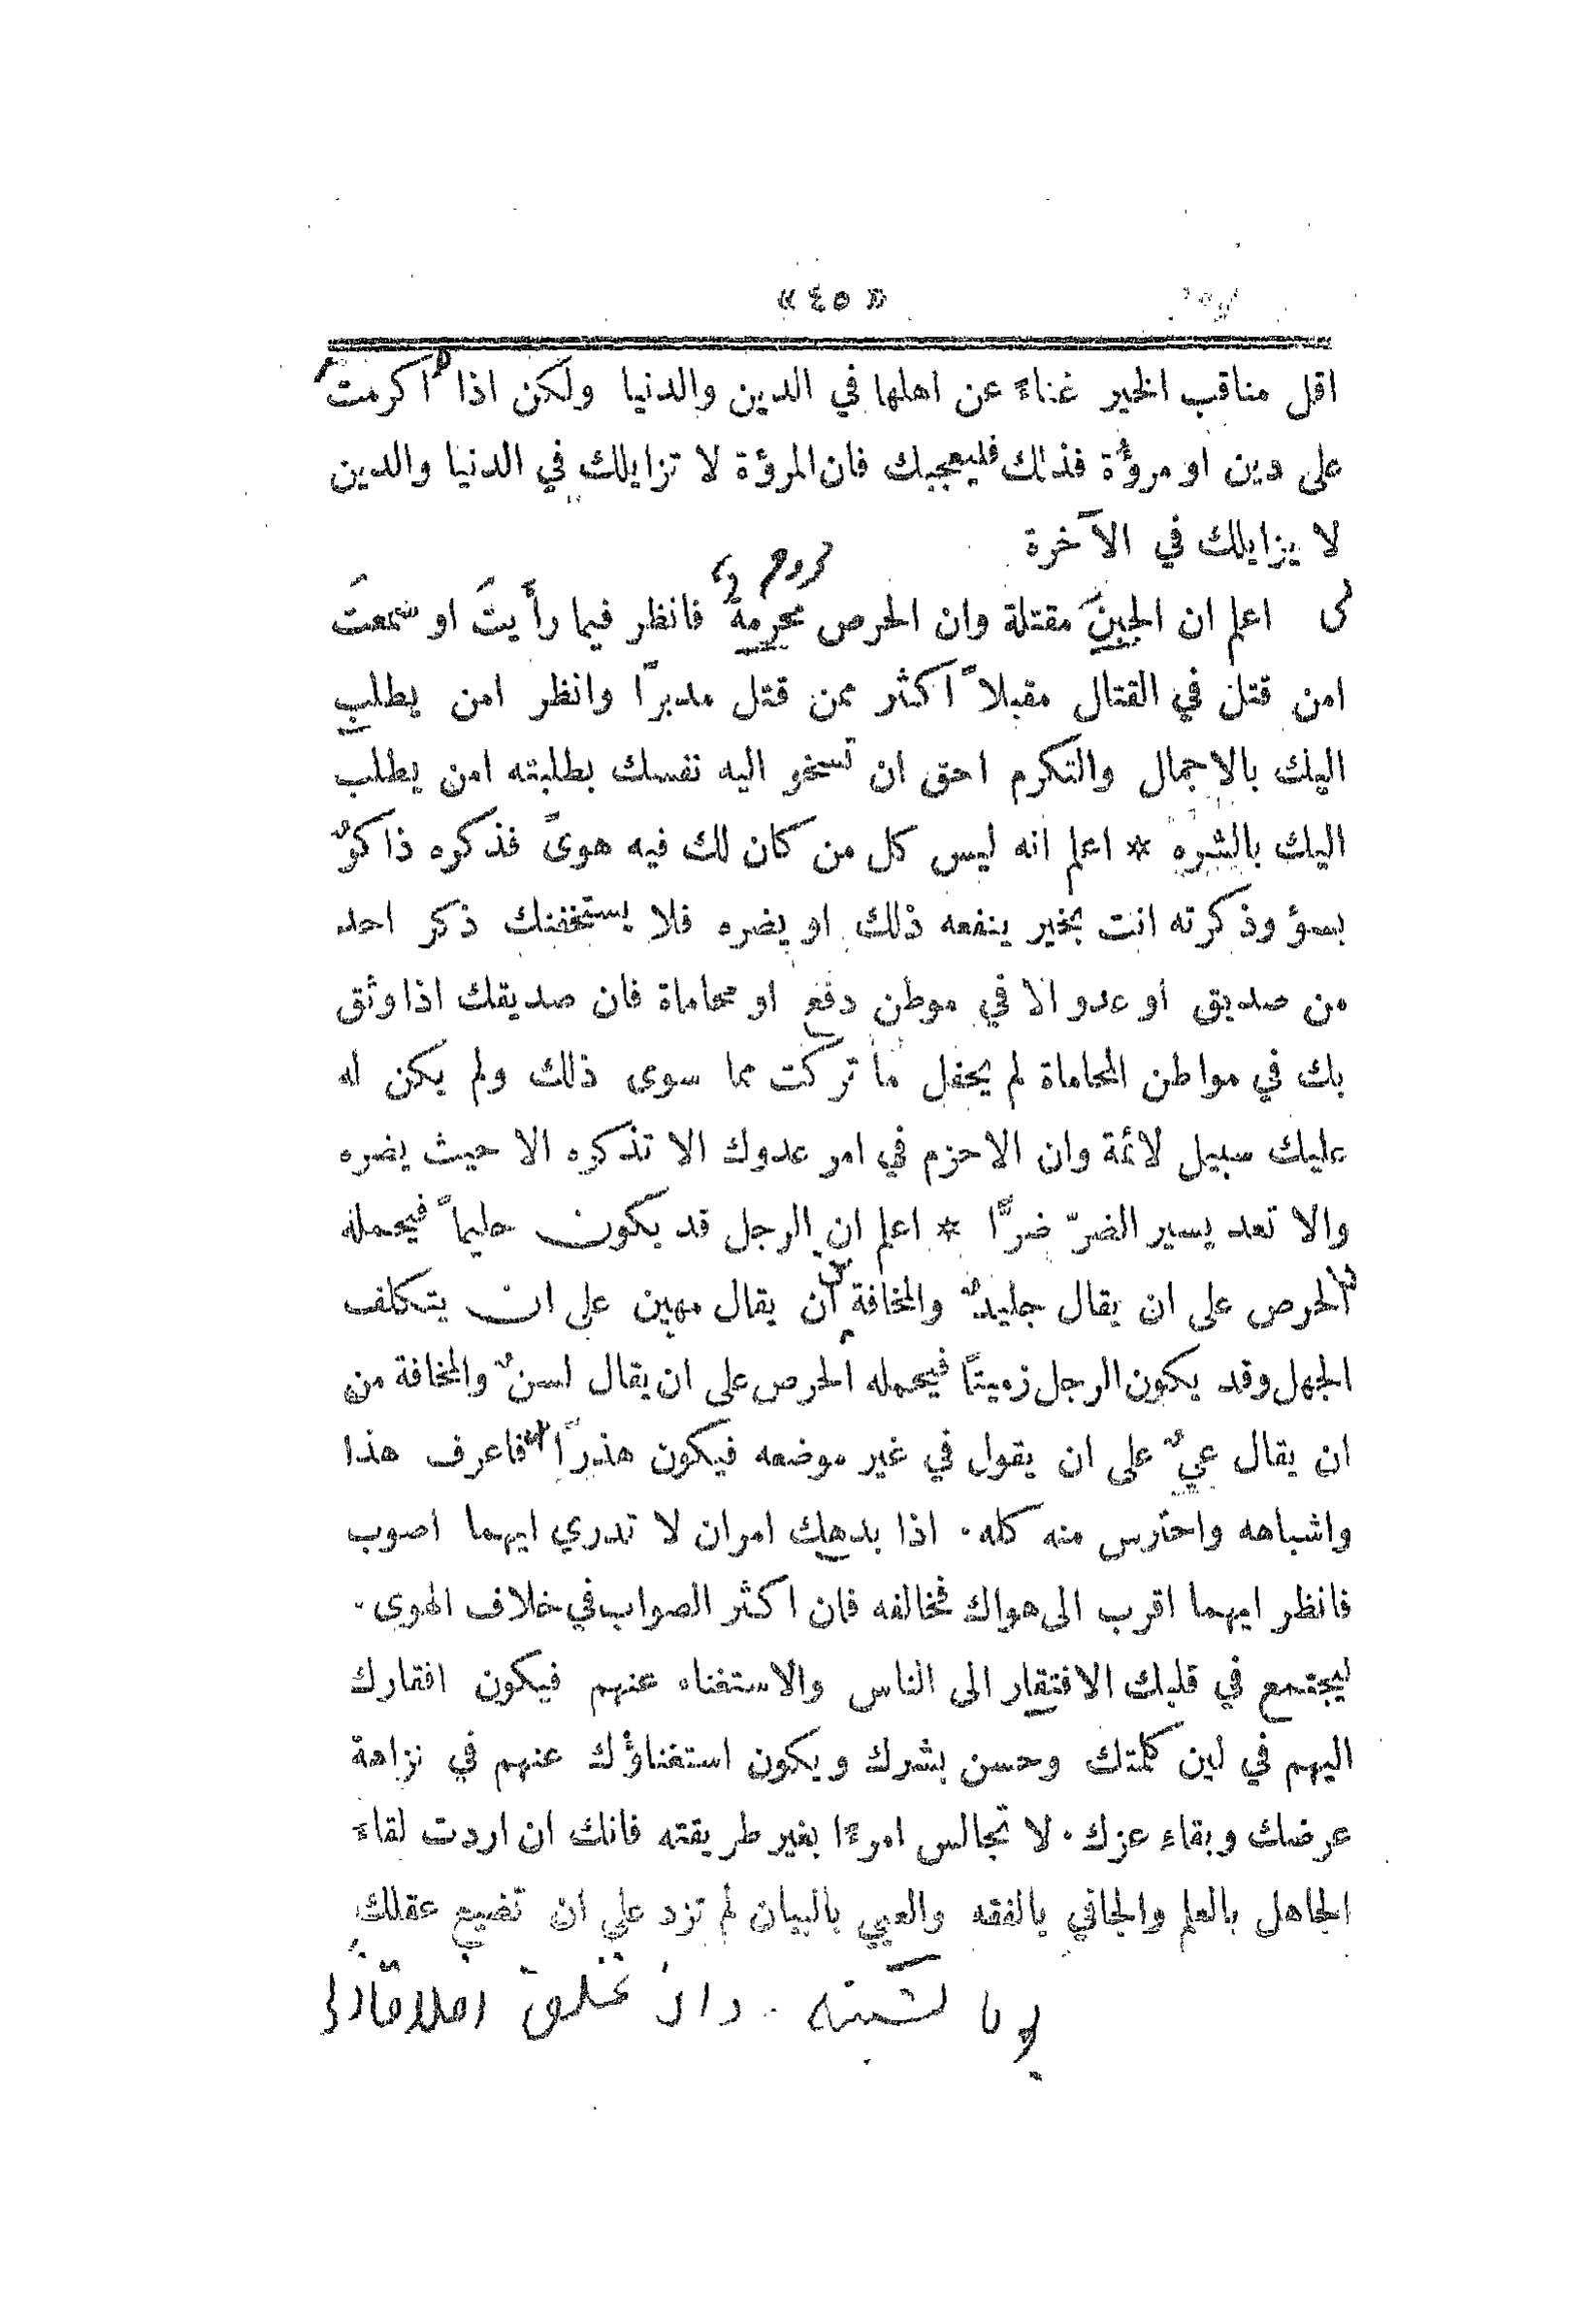 « ٤٥ »
اقل مناقب الخير غناءً عن اهلها في الدين والدنيا ولكن اذا اكرمت
على دين او مروؤة فذلك فليعجبك فان المروؤة لا تزايلك في الدنيا والدين
لا يزايلك في الآخرة
اعلم ان الجبنَ مقتلة وان الحرص محرمة فانظر فيما رأَيتَ او سمعتَ
امن قتل في القتال مقبلاً اكثر ممن قتل مدبرًا وانظر امن يطلب
اليك بالاجمال والتكرم احق ان تسخو اليه نفسك بطلبته امن يطلب
اليك بالشره * اعلم انه ليس كل من كان لك فيه هوىً فذكره ذاكرٌ
بسؤ وذكرته انت بخير ينفعه ذلك او يضره فلا يستخفنك ذكر احد
من صديق او عدو الا في موطن دفع او محاماة فان صديقك اذا وثق
بك في مواطن المحاماة لم يحفل ما تركت مما سوى ذلك ولم يكن له
عليك سبيل لائمة وان الاحزم في امر عدوك الا تذكره الا حيث يضره
والا تعد يسير الضرّ ضرًّا * اعلم ان الرجل قد يكون حليماً فيحمله
الحرص على ان يقال جليدٌ والمخافة ان يقال مهين على ان يتكلف
الجهل وقد يكون الرجل زميتًا فيحمله الحرص على ان يقال لسنٌ والمخافة من
ان يقال عيٌ على ان يقول في غير موضعه فيكون هذرًا فاعرف هذا
واشباهه واحترس منه كله ٠ اذا بدهك امران لا تدري ايهما اصوب
فانظر ايهما اقرب الى هواك فخالفه فان اكثر الصواب في خلاف الهوى ٠
ليجتمع في قلبك الافتقار الى الناس والاستغناء عنهم فيكون افقارك
اليهم في لين كلمتك وحسن بشرك ويكون استغناؤك عنهم في نزاهة
عرضك وبقاء عزك ٠ لا تجالس امرءًا بغير طريقته فانك ان اردت لقاء
الجاهل بالعلم والجافي بالفقه والعيي بالبيان لم تزد على ان تضيع عقلك